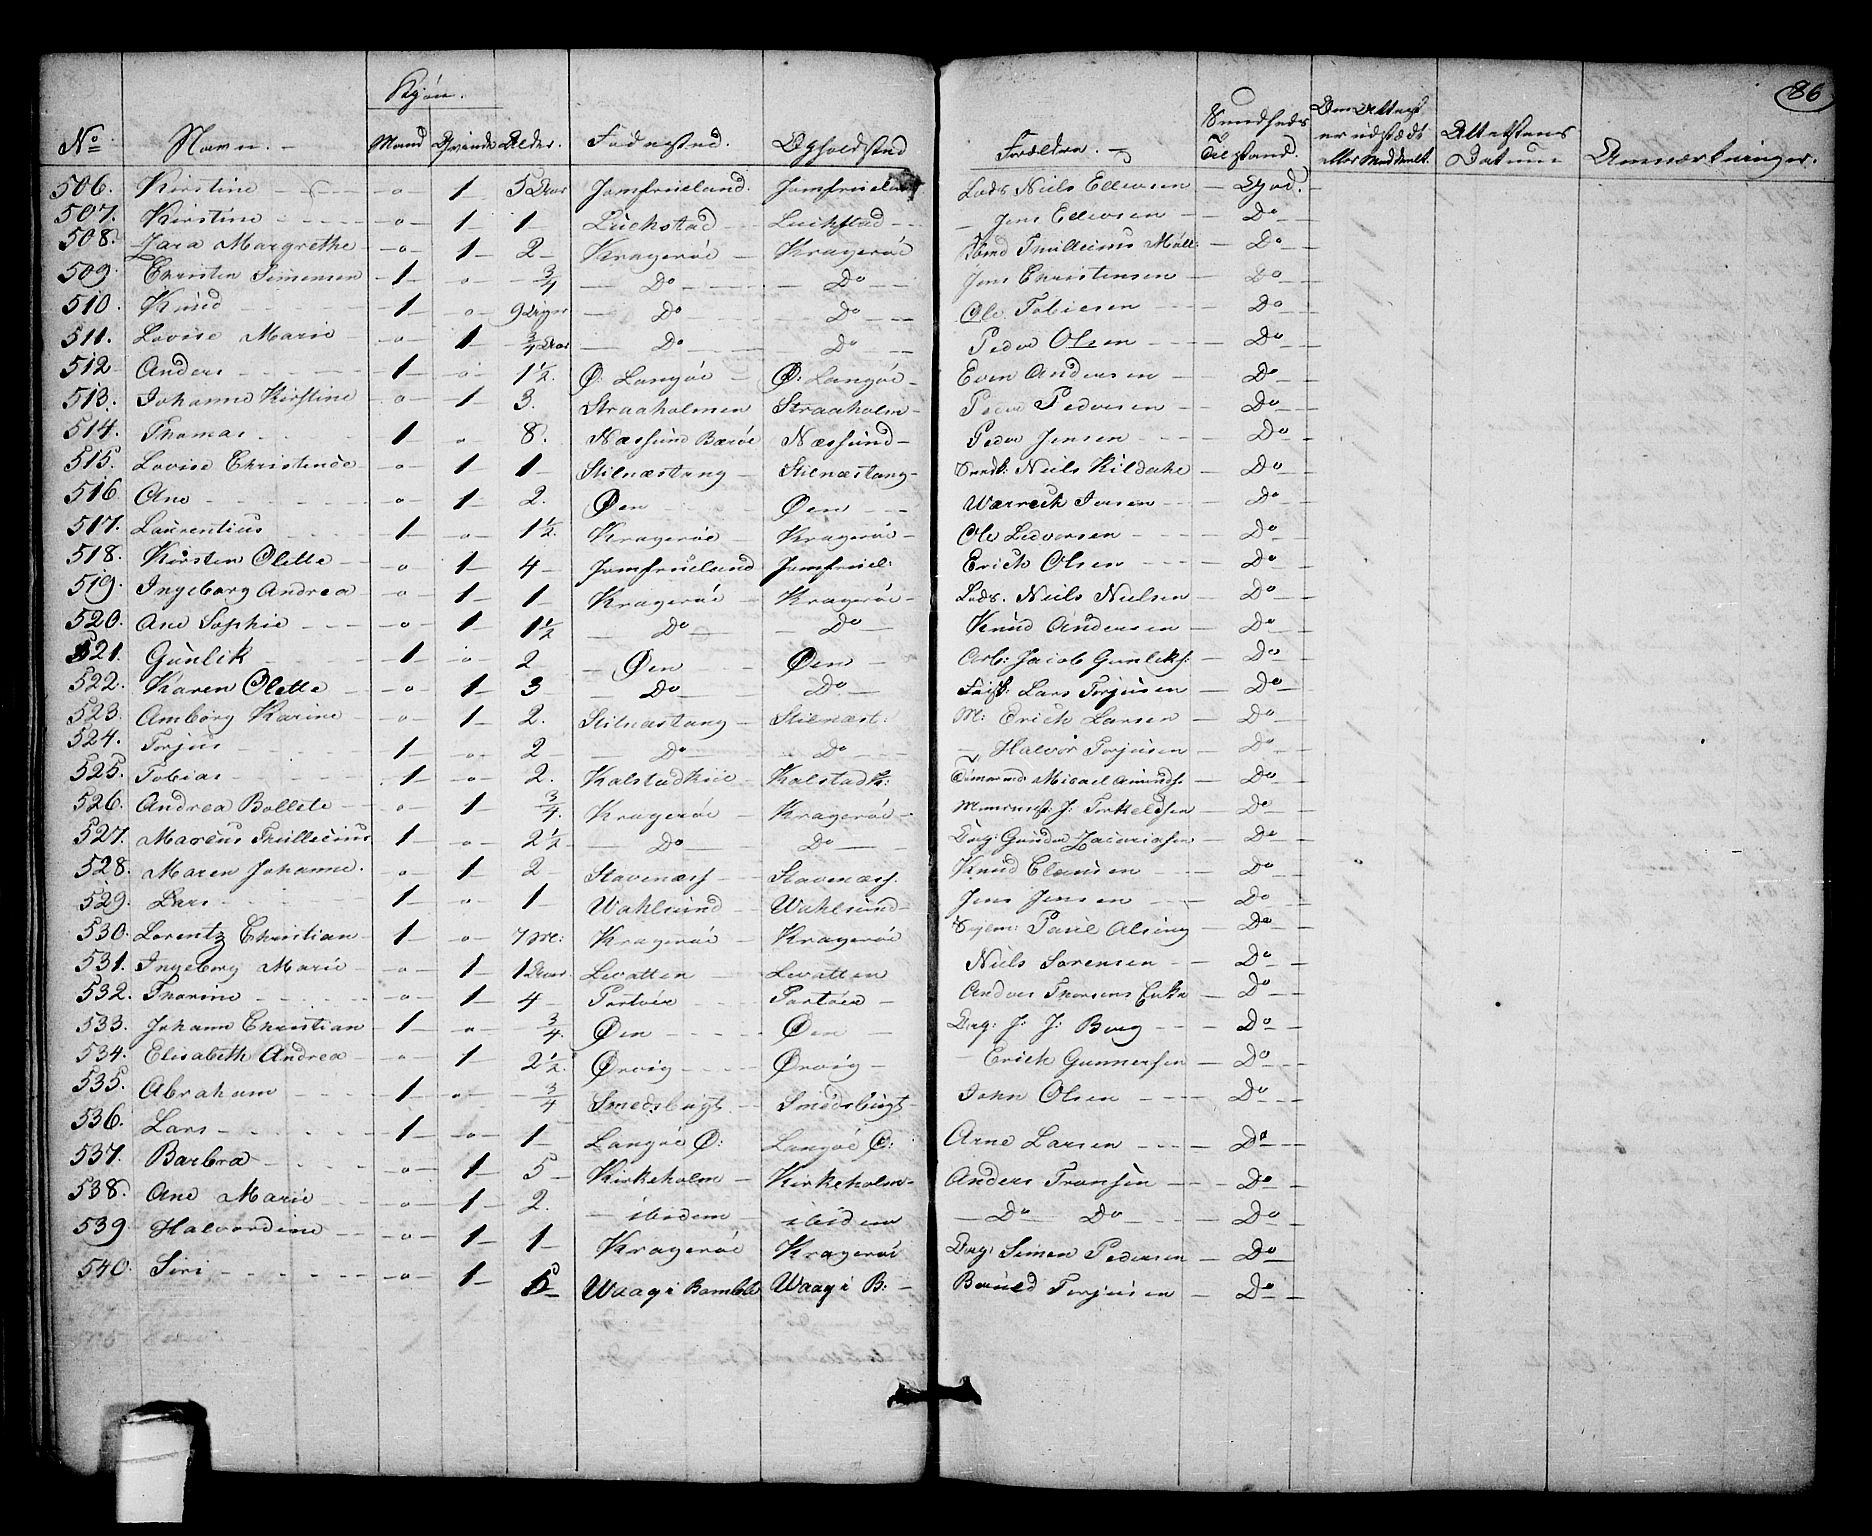 86
Kjön.
No Navn. Mand Qvinde Alder. Fødested. Opholdssted Forældre. Sundheds Tilstand. Attestens Datum Anmærkninger.
506. Kirstine - o - 1 - 5 Aar Jomfrueland. Jomfrueland Lods Niels Ellevsen - God.
507. Kirstine - o - 1 - 1 - Luckstad - Luckstad - - Jens Ellevsen - Do
508. Zara Margrethe - o - 1 - 2 - Kragerøe - Kragerøe Thullesius Møll: - Do
509. Christen Simensen 1 - o - 3/4 - Do - Do - Jens Christensen - Do
510. Knud - 1 - o - 9 Uger - Do - Do - Ole Tobiesen - Do
511. Lovise Marie - o - 1 - 3/4 Aar - Do - Do - Peder Olsen - Do
512 Anders - 1 - o - 1 1/2. Ø: Langøe - Ø: Langøe - Even Andersen - Do
513. Johanne Kirstine - o - 1 - 3. Straaholmen Straaholm - Peder Pedersen - Do
514. Thomas - 1 - o - 8. Næssund Barøe Næssund - Peder Jensen - Do
515. Lovise Christence - o - 1 - 1 Stilnæstang - Stilnæstang - Niels Kildahe - Do
516. Ane - o - 1 - 2. Øen - Øen - Warreck Iversen - Do
517. Laurentius - 1 - o - 1 1/2. Kragerøe - Kragerøe - Ole Ledvorsen - Do
518. Kirsten Olette - o - 1 - 4 - Jomfrueland Jomfruel: Erich Olsen - Do
519. Ingeborg Andrea - o - 1 - 1 - Kragerøe - Kragerøe - Lods. Niels Nielsen - Do
520. Ane Sophie - o - 1 - 1 1/2 - Do - Do - Knud Andersen - Do
521. Gunlik - 1 - o - 2 - Øen - Øen - Arb: Jacob Gunleks: - Do
522. Karen Olette - o - 1 - 3 - Do - Do - Fisk: Lars Torjusen - Do
523. Amborg Karine - o - 1 - 2. Stilnæstang - Stilnæst: M: Erich Larsen - Do
524. Torjus - 1 - o - 2 - Do - Do - - Halvor Torjusen - Do
525. Tobias - 1 - o - 2. Kalstadkiil - Kalstadk: Tømermd: Micael Amunds. - Do
526. Andrea Bollete - o - 1 - 3/4. Kragerøe - Kragerøe - Muurmst: J: Torkeldsen - Do
527. Marcus Thullecius 1 - o - 2 1/2 - Do - Do - Dag: Gunder Zacariasen - Do
528. Maren Johanne. - o - 1 - 2 - Stavenæss - Stavenæss. Knud Clausen - Do
529. Lars - 1 - o - 1 - Wahlsund - Wahlsund - Jens Jensen - Do
530. Lorentz Christian - 1 - o - 7 M: Kragerøe - Kragerøe Paul Alsing - Do
531. Ingeborg Marie - o - 1 - 1 Aar Levatten - Levatten Niels Sørensen - Do
532. Thorine - o - 1 - 4 - Portøer - Portøer - Anders Thorsens Enke - Do
533. Johann Christian - 1 - o - 3/4. Øen - Øen - Dag: J: J: Berg - Do
534. Elisabeth Andrea - o - 1 - 2 1/2. Ørvig - Ørvig - - Erich Gunnersen - Do
535. Abraham - 1 - o - 3/4 Smedsbugt - Smedsbugt - John Olsen - Do
536. Lars - 1 - o - 1 - Langøe Ø: Langøe Ø: Arne Larsen - Do
537. Barbra - o - 1 - 5 - Kirkeholm - Kirkeholm - Anders Fransen - Do
538. Ane Marie - o - 1 - 2. - ibidem - ibidem - Do Do - Do
539 Halvordine - o - 1 - 1 - Kragerøe Kragerøe Dag: Simen Pedersen - Do
540. Siri - o - 1 - Waag i Bamble Waag i B: - Torjusen - Do